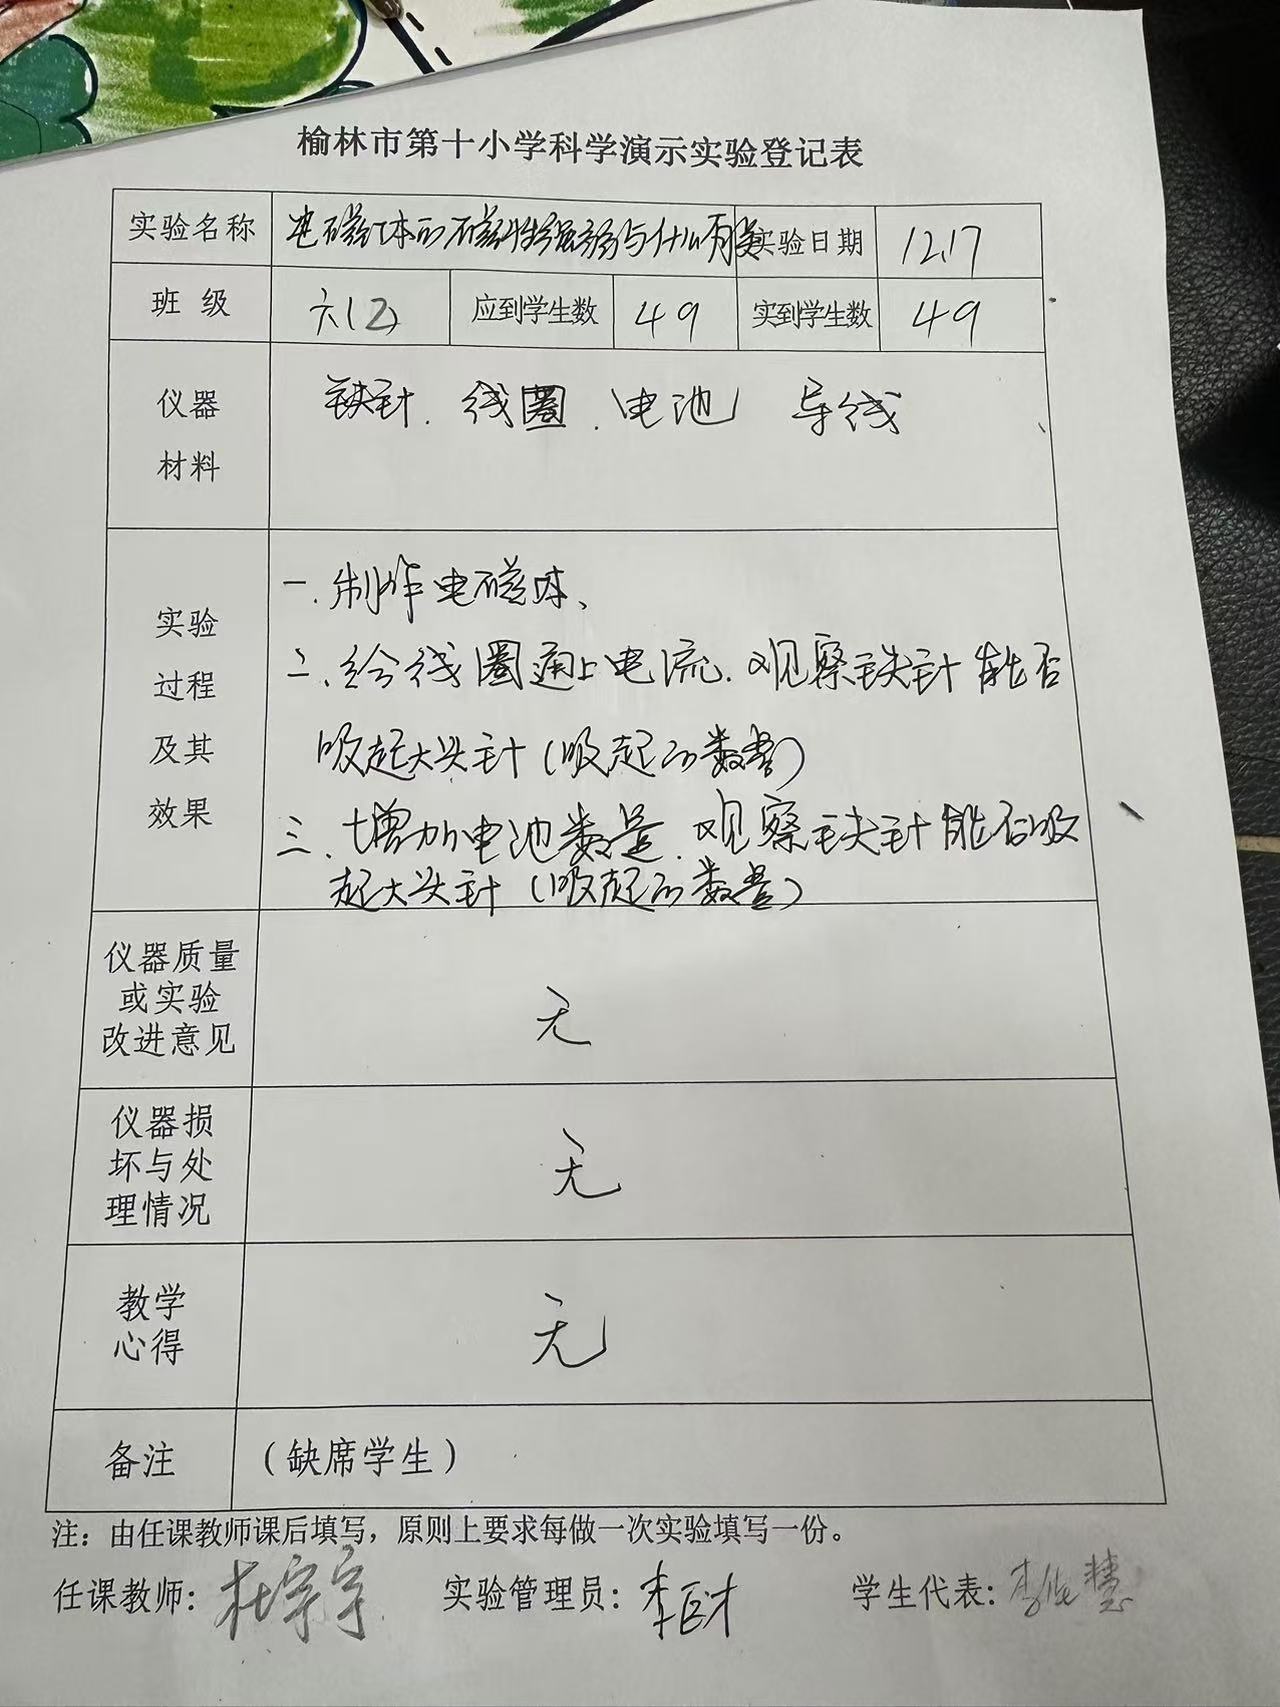 榆林市第十小学科学演示实验登记表
实验名称 电磁体的磁性强弱与什么有关 实验日期 12.17
班 级 六(2) 应到学生数 49 实到学生数 49
仪器 铁针.线圈.电池 导线
材料
一.制作电磁体、
实验 二、给线圈通上电流.观察铁针能否
过程
及其 吸起大头针(吸起的数量)
效果 三.增加电池数量.观察铁针能否吸
起大头针(吸起的数量)
仪器质量
或实验 无
改进意见
仪器损
坏与处 无
理情况
教学 无
心得
备注 (缺席学生)
注：由任课教师课后填写，原则上要求每做一次实验填写一份。
任课教师: 杜宇宇 实验管理员: 李 学生代表: 李 慧